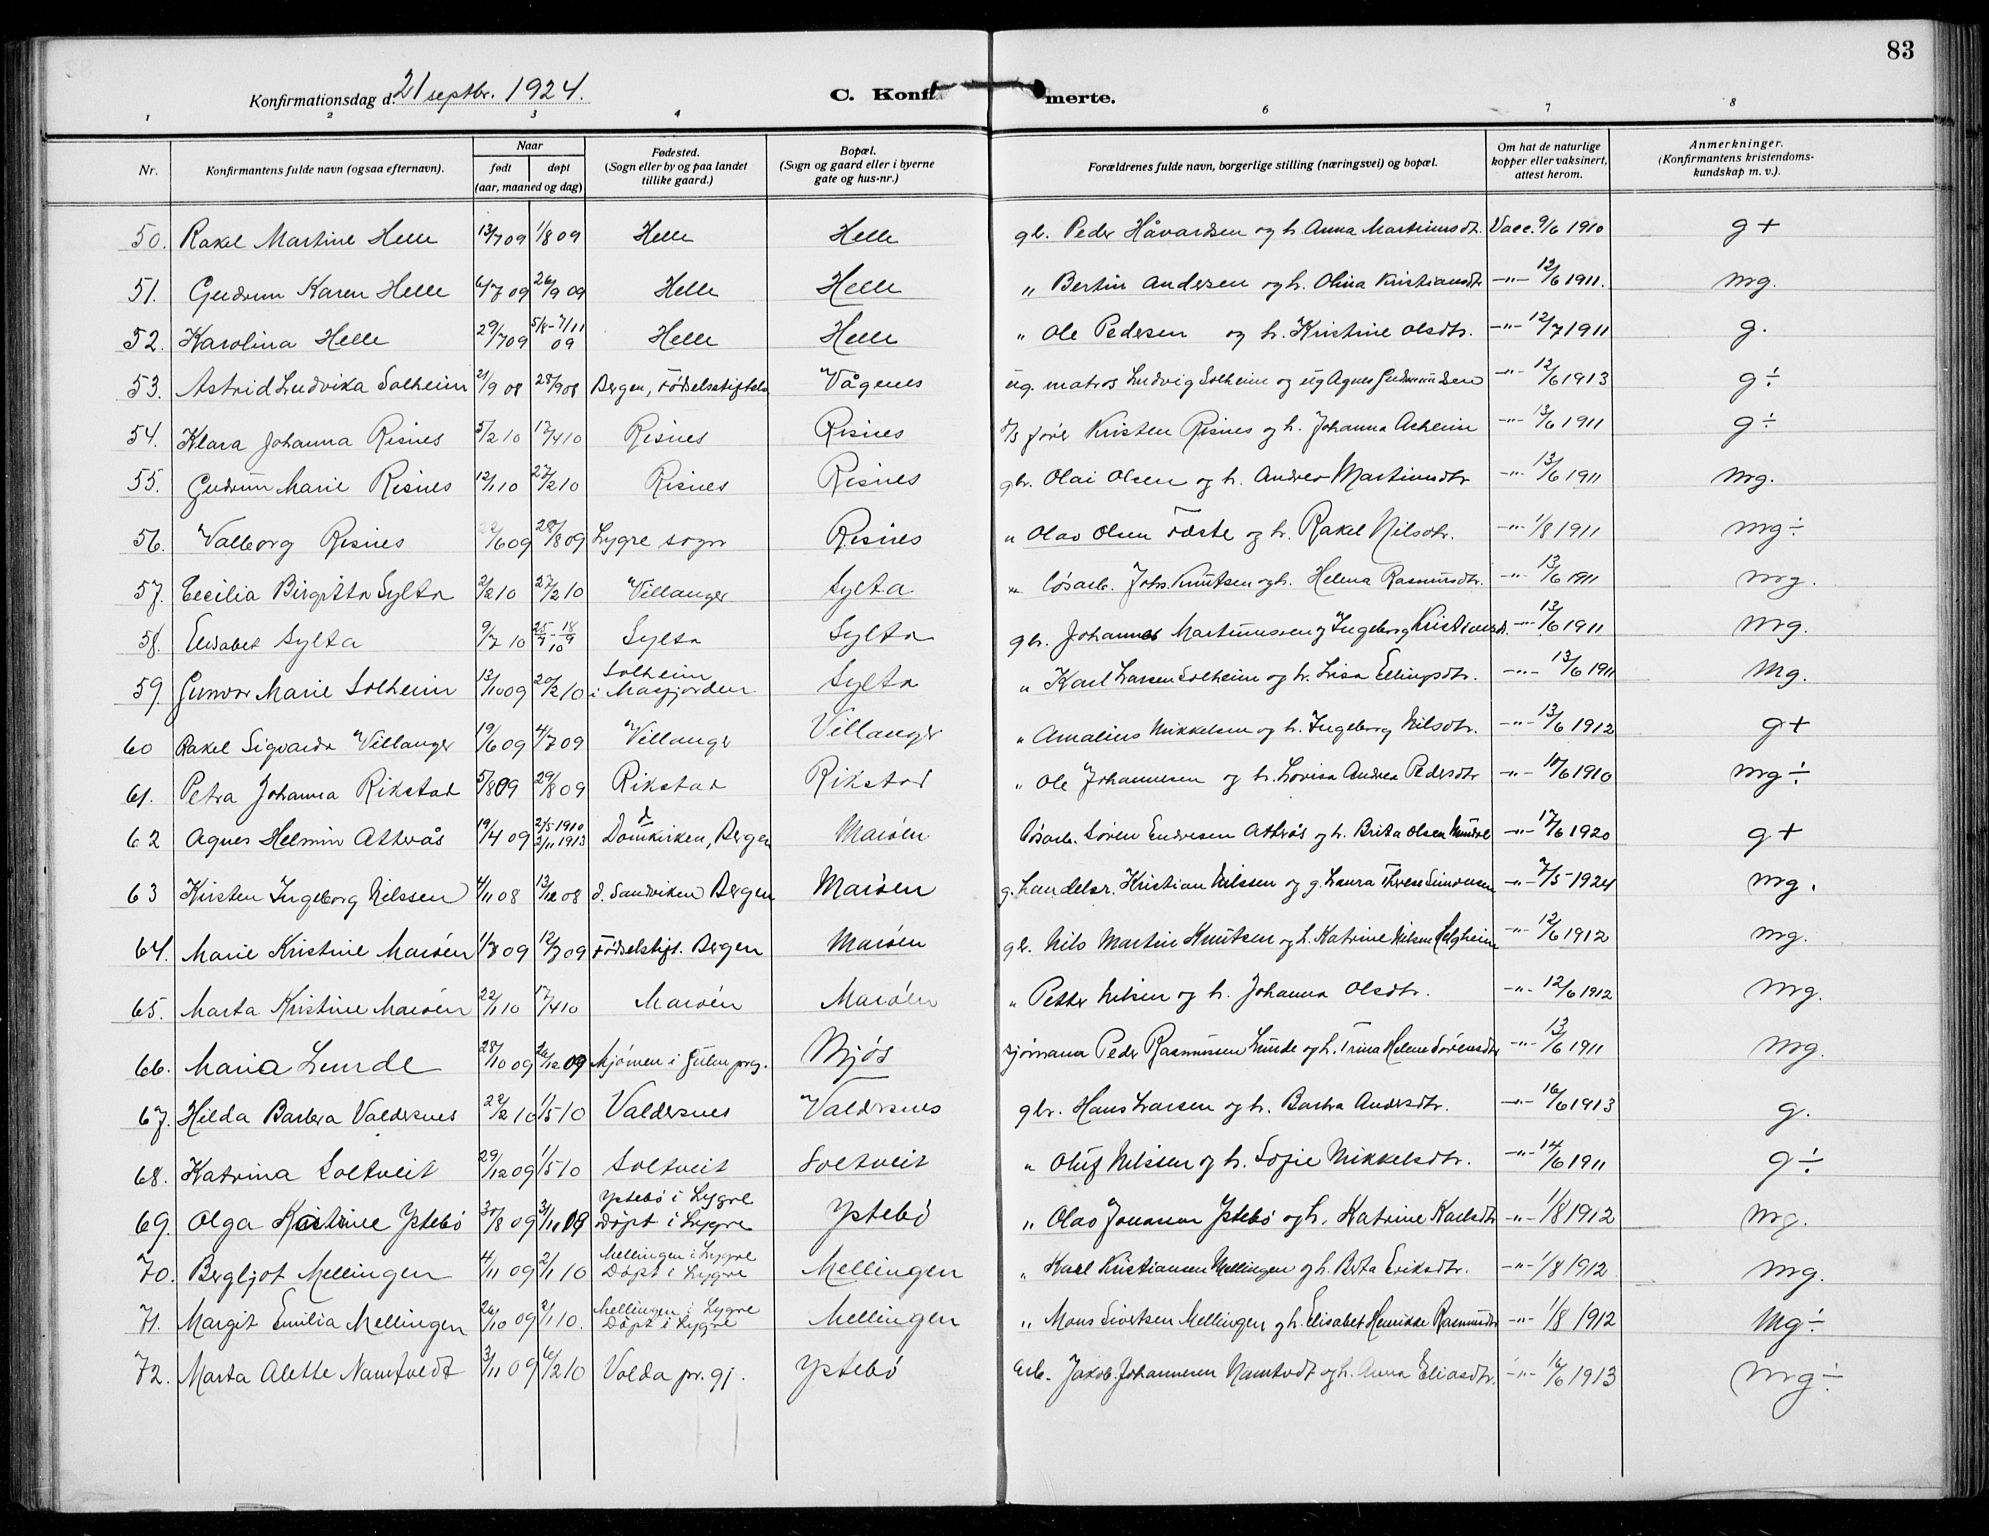 83
Konfirmationsdag d. 21 septbr. 1924.
C. Konfi merte.
1 2 3 4 6 7 8
Nr. Konfirmantens fulde navn (ogsaa efternavn). Naar født døpt (aar, maaned og dag) Fødested. (Sogn eller by og paa landet tillike gaard.) Bopæl. (Sogn og gaard eller i byerne gate og hus-nr.) Forældrenes fulde navn, borgerlige stilling (næringsvei) og bopæl. Om hat de naturlige kopper eller vaksinert, attest herom. Anmerkninger. (Konfirmantens kristendoms-kundskap m. v.).
50. Rakel Martine Helle 13/7 09 1/8 09 Helle Helle gb. Peder Håvardsen og h. Anna Martinusdt. Vacc. 9/6 1910 g+
51. Gudrun Karen Helle 6/7 09 26/9 09 Helle Helle " Bertin Andersen og h. Olina Kristiansdt -"- 12/6 1911. mg.
52. Karolina Helle 29/7 09 5/8-7/11 09 Helle Helle " Ole Pedersen og h. Kristine Olsdtr. -"- 12/7 1911 g.
53. Astrid Ludvika Solheim 21/9 08 28/9 08 Bergen, Fødselsstiftels Vågenes ug. matros Ludvig Solheim og ug Agnes -"- 12/6 1913 g÷
54. Klara Johanna Risnes 5/2 10 17/4 10 Risnes Risnes Kristen Risnes og h. Johanna Asheim -"- 13/6 1911 g÷
55. Gudrun Marie Risnes 12/1 10 27/2 10 Risnes Risnes gbr. Olai Olsen og h. Andrea Martinusdtr -"- 13/6 1911 mg.
56. Valborg Risnes 22/6 09 28/8 09 Lygre sogn Risnes " Olav Olsen Fæste og h. Rakel Nilsdtr. -"- 1/8 1911 mg÷
57. Cecilia Birgitta Sylta 2/2 10 27/2 10 Villanger Sylta " løsarb. Johs. Knutsen og h. Helena Rasmusdtr. -"- 13/6 1911 mg.
58. Elisabet Sylta 9/7 10 25/7-18/9 10 Sylta Sylta gbr. Johannes Martinussen og Ingeborg Kristiansdt. -"- 13/6 1911 mg.
59. Gunvor Marie Solheim 13/10 09 20/2 10 Solheim i Masfjorden Sylta " Karl Larsen Solheim og h. Lisa Ellingsdtr. -"- 13/6 1911 mg.
60 Rakel Sigvarda Villanger 19/6 09 4/7 09 Villanger Villanger " Amalius Mikkelsen og h. Ingeborg Nilsdtr. -"- 13/6 1912 g+
61. Petra Johanna Rikstad 5/8 09 29/8 09 Rikstad Rikstad " Ole Johannesen og h. Lovisa Andrea Pedersdtr -"- 11/6 1910 mg÷
62 Agnes Helmin Atterås 19/4 09 2/5-1910 2/11 1913 Domkirken, Bergen Marøen løsarb. Søren Endresen Atterås og h. Brita Olsen -"- 17/6 1920 g+
63 Kirsten Ingeborg Nilssen 4/11 08 13/12 08 d. Sandviken Bergen Marøen g. handelsr. Kristian Nilssen og g. Laura Therese -"- 7/5-1924 mg.
64. Marie Kristine Marøen 1/7 09 12/7 09 Fødselstift. Bergen Marøen gb. Nils Martin Knutsen og h. Katrine Nilsen Helgheim -"- 12/6 1912 mg.
65. Marta Kristine Marøen 22/1 10 17/4 10 Marøen Marøen " Petter Nilsen og h. Johanna Olsdtr. -"- 12/6 1912 mg.
66. Maria Lunde 28/10 09 26/12 09 Mjømen i Gulen preg. Mjøs sjømann Peder Rasmussen Lunde og h. Trina Helene Sørensdtr -"- 13/6 1911 mg.
67. Hilda Barbra Valdersnes 22/2 10 1/5 10 Valdersnes Valdersnes gbr. Hans Larsen og h. Barbra Andersdtr. -"- 16/6 1913 g.
68. Katrina Soltveit 29/12 09 1/5 10 Soltveit Soltveit " Oluf Nilssen og h. Sofie Mikkelsdtr. -"- 14/6 1911 g÷
69. Olga Kristine Ystebø 30/8 09 31/11 09 Ystebø i Lygre Døpt i Lygre Ystebø " Olav Ystebø og h. Katrine Karlsdtr -"- 1/8 1912 mg.
70. Bergljot Mellingen 4/11 09 2/1 10 Mellingen i Lygre Døpt i Lygre Mellingen " Karl Kristiansen Mellingen og h. Berta Eriksdtr. -"- 1/8 1912 mg.
71. Margit Emilia Mellingen 26/10 09 2/1 10. Mellingen i Lygre Døpt i Lygre Mellingen " Mons Sivertsen Mellingen og h. Elisabet Henrikke Rasmusdtr -"- 1/8 1912 mg÷
72. Marta Alette Namtvedt 3/11 09 6/2 10 Volda pr. gj. Ystebø arb. Jakob Johannesen Namtvedt og h. Anna Eliasdtr. -"- 16/6 1913 mg÷